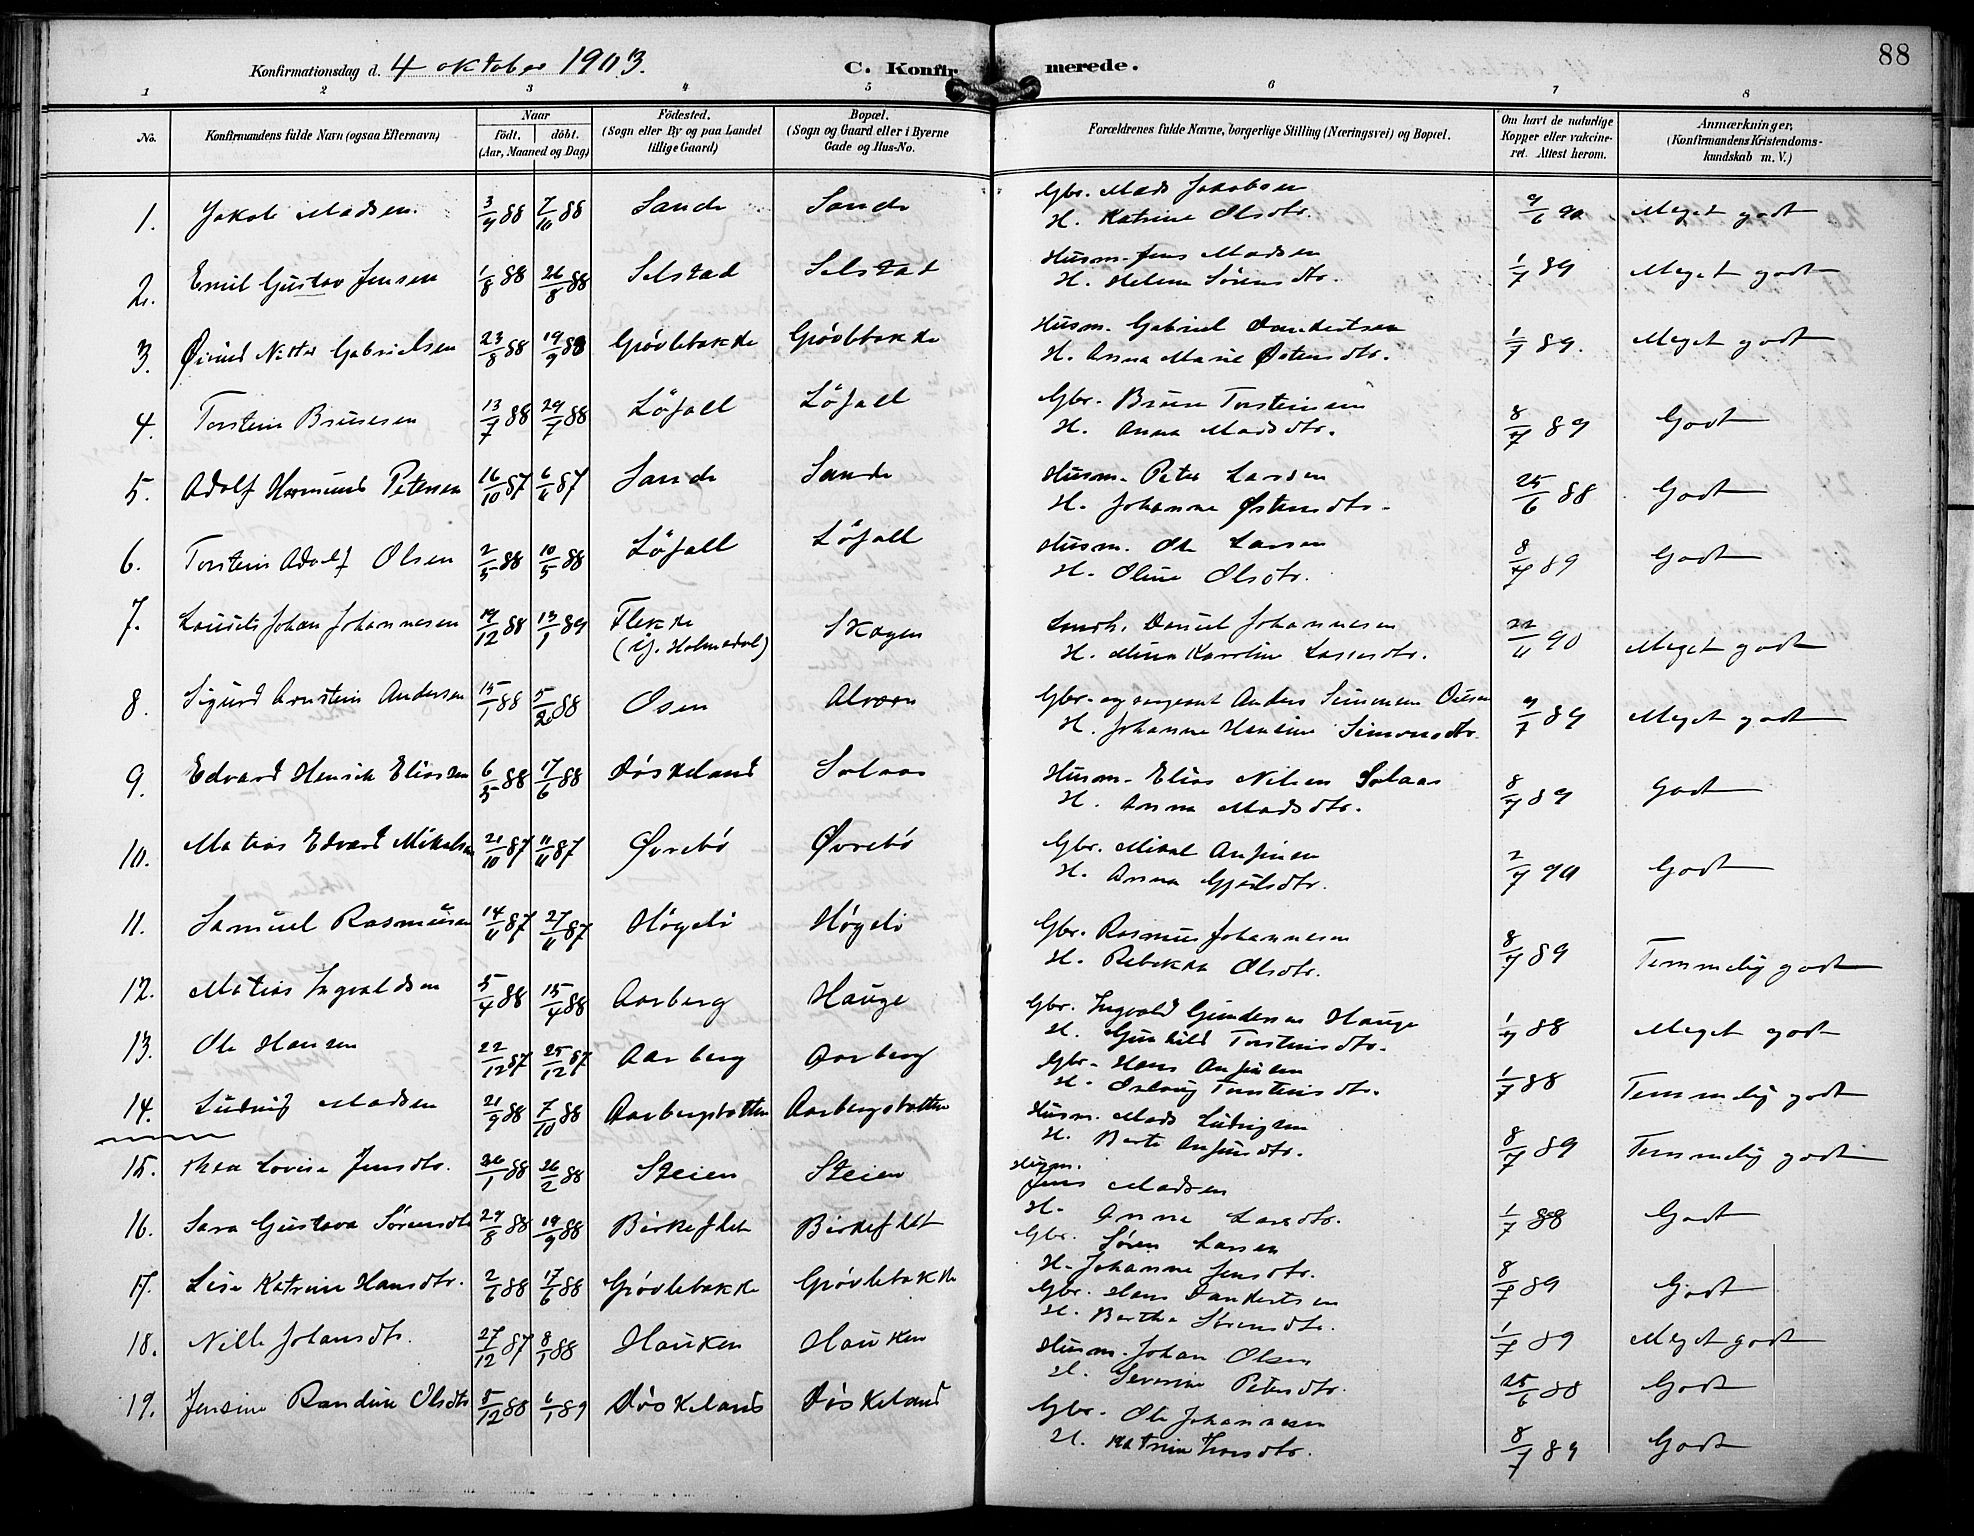 88
Konfirmationsdag d. 4 oktober 1903.
C. Konfirmerede.
1 2 3 4 5 6 7 8
No.
Konfirmandens fulde Navn (ogsaa Efternavn)
Naar
födt. döbt.
(Aar, Maaned og Dag)
Födested.
(Sogn eller By og paa Landet
tillige Gaard)
Bopæl.
(Sogn og Gaard eller i Byerne
Gade og Hus-No.
Forældrenes fulde Navne, borgerlige Stilling (Næringsvei) og Bopæl.
Om havt de naturlige
Kopper eller vakcine-
ret. Attest herom.
Anmærkninger,
(Konfirmandens Kristendoms-
kundskab m. V.)
1. Jakob Madsen. 3/9 88 7/10 88 Sande Sande Gbr. Mads Jakobsen
H. Katrine Olsdtr. 9/6 90 Meget godt
2. Emil Gustav Jensen 1/8 88 26/8 88 Selstad Selstad Husm. Jens Madsen
H. Helene Sørensdtr. 1/7 89 Meget godt
3. Øivind Nitter Gabrielsen 23/8 88 19/9 88 Grövlebakke Grövlebakke Husm. Gabriel Dankertsen
H. Anna Marie Østensdtr. 1/7 89. Meget godt
4. Torstein Brunesen 13/7 88 29/7 88 Löfall Löfall Gbr. Brune Torsteinsen
H. Anna Madsdtr. 8/7 89 Godt
5. Adolf Hermund Petersen 16/10 87 6/11 87 Sande Sande Husm. Peter Larsen
H. Johanne Østensdtr. 25/6 88 Godt
6. Torstein Adolf Olsen 2/5 88 10/5 88 Löfall Löfall Husm. Ole Larsen
H. Oline Olsdtr. 8/7 89 Godt
7. Laurits Johan Johannesen 19/12 88 13/1 89 Flekke
(i Y. Holmedal) Skogen Daniel Johannesen
H. Mina Karoline Lassesdtr. 22/11 90 Meget godt
8. Sigurd Arnstein Andersen 15/1 88 5/2 88 Osen Alværn Gbr. og sergeant Anders Simonsen Osen
H. Johanne Hansine Simonsdtr. 9/7 89 Meget godt
9. Edvard Henrik Eliassen 6/5 88 17/6 88 Döskeland Solaas Husm. Elias Nilsen Solaas
H. Anna Madsdtr. 8/7 89 Godt
10. Matias Edvard Mikalsen 21/10 87 11/11 87 Øvrebö Øvrebö Gbr. Mikal Anfinsen
H. Anna Gjertsdtr. 2/7 90 Godt
11. Samuel Rasmusen 14/11 87 27/11 87 Högeli Høgeli Gbr. Rasmus Johannesen
H. Rebekka Olsdtr. 8/7 89 Temmelig godt
12. Matias Ingvaldsen 5/4 88 15/4 88 Aarberg Hauge Gbr. Ingvald Gundersen Hauge
H. Gunhild Torsteinsdtr. 1/7 88 Meget godt
13. Ole Hansen 22/12 87 25/12 87 Aarberg Aarberg Gbr. Hans Anfinsen
H. Oslaug Torsteinsdtr. 1/7 88 Temmelig godt
14. Ludvig Madsen 21/9 88 7/10 88 Aarbergstøtten Aarbergstøtten Husm. Mads Ludvigsen
H. Berte Anfinsdtr. 8/7 89 Temmelig godt
15. Thea Lovise Jensdtr. 26/1 88 26/2 88 Steien Steien Husm.
Jens Madsen
H. Anne Larsdtr. 1/7 88 Godt
16. Sara Gustava Sörensdtr 29/8 88 19/9 88 Birkeflet Birkeflet Gbr. Sören Larsen
H. Johanne Jensdtr. 8/7 89 Godt
17. Lise Katrine Hansdtr. 2/6 88 17/6 88 Grövlebakke Grövlebakke Gbr. Hans Dankertsen
H. Berthe Sörensdtr. 1/7 89 Meget godt
18. Nille Johansdtr. 27/12 87 8/1 88 Hauken Hauken Husm. Johan Olsen
H. Severine Petersdtr. 25/6 88 Godt
19. Jensine Randine Olsdtr 5/12 88 6/1 89 Döskeland Döskeland Gbr. Ole Johannesen
H. Katrine 8/7 89 Godt